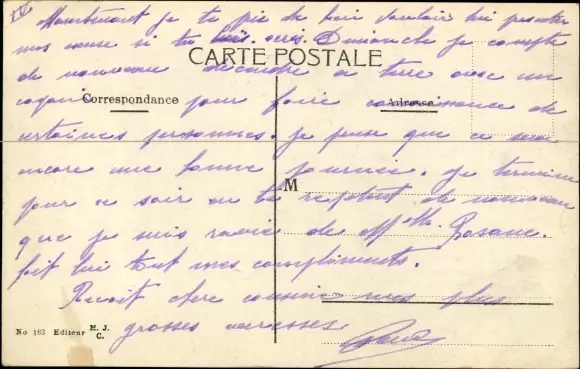 IV Maintenant je te prie de bien vouloir lui presenter
mes amies si tu lui ecris. Dimanche je compte
CARTE POSTALE
de nouveau descendre a terre avec un
copain pour faire connaissance de
Correspondance Adresse
certaines personnes. Je pense que ce sera
encore une bonne journée. Je termine
M
pour ce soir en te repetant de nouveau
que je suis ravie de Mlle Rosane.
fait lui tout mes compliments.
Recoit chere cousine mes plus
grosses caresses
No 183 Editeur M. J. C.